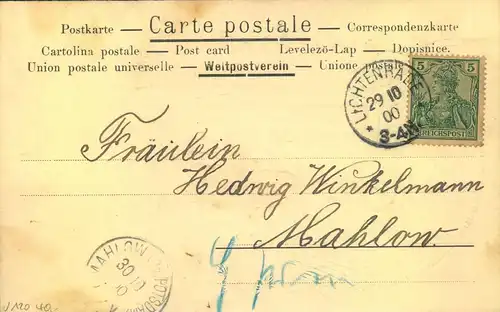 Postkarte — Carte postale — Correspondenzkarte
Cartolina postale — Post card    Levelezö-Lap — Dopisnice.
Union postale universelle — Weltpostverein — Unione postale
LICHTENRADE
29 10
00
* 3-4N
5 5
REICHSPOST
Fräulein
Hedwig Winkelmann
Mahlow.
MAHLOW
POTSDAM
30 10